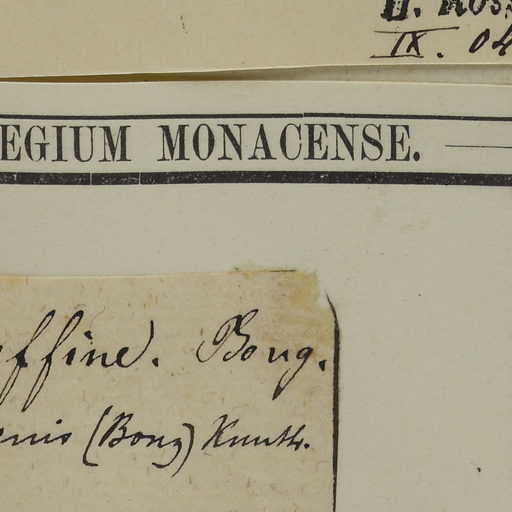 H. Ross
IX. 04
EGIUM MONACENSE.
affine. Bong.
ensis (Bong) Kunth.